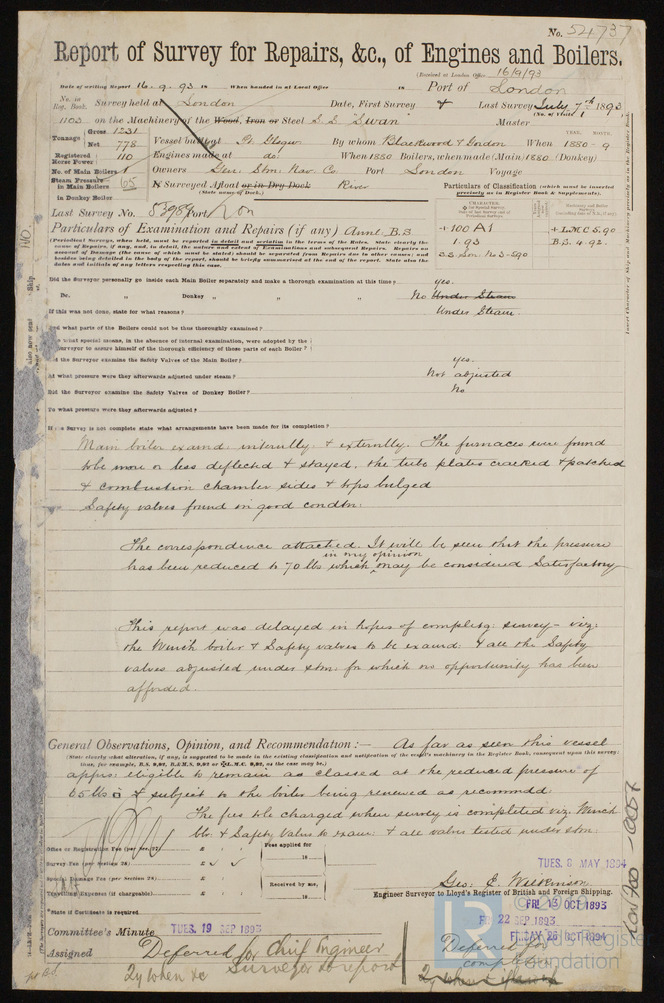 No. 54737
Report of Survey for Repairs, &c., of Engines and Boilers.
(Received at London Office 16/9/93
Date of writing Report 16.9.93 18 When handed in at Local Office 18 Port of London
No. in Reg. Book. Survey held at London Date, First Survey & Last Survey July 7th 1893
(No. of Visits 1
1103 on the Machinery of the Wood, Iron or Steel S.S. "Swan" Master
Tonnage Gross 1231 Net 778 Vessel built at Pt. Glasgow By whom Blackwood & Gordon When 1880 - 9
YEAR. MONTH.
Registered Horse Power 110 Engines made at do: When 1880 Boilers, when made (Main) 1880 (Donkey)
No. of Main Boilers 1 Owners Gen. Stm. Nav. Co Port London Voyage
Steam Pressure in Main Boilers 65 If Surveyed Afloat or in Dry Dock River
(State name of Dock.)
in Donkey Boiler
Particulars of Classification (which must be inserted precisely as in Register Book & Supplements).
Last Survey No. 53989 Port Lon
Particulars of Examination and Repairs (if any) Annl. B.S.
+100 A1
1.93
S.S. Lon. No 3-5.90
+LMC 5.90
B.S. 4.92.
(Periodical Surveys, when held, must be reported in detail and seriatim in the terms of the Rules. State clearly the
Did the Surveyor personally go inside each Main Boiler separately and make a thorough examination at this time? yes.
Do. " Donkey " " " No Under Steam
If this was not done, state for what reasons? Under Steam.
And what parts of the Boilers could not be thus thoroughly examined?
what special means, in the absence of internal examination, were adopted by the
Surveyor to assure himself of the thorough efficiency of those parts of each Boiler?
Did the Surveyor examine the Safety Valves of the Main Boiler? yes.
At what pressure were they afterwards adjusted under steam? Not adjusted
Did the Surveyor examine the Safety Valves of Donkey Boiler? No
To what pressure were they afterwards adjusted?
If the Survey is not complete state what arrangements have been made for its completion?
Main boiler examd. internally & externally. The furnaces were found
to be more or less deflected & stayed. the tube plates cracked & patched
& combustion chamber sides & tops bulged
Safety valves found in good condtn:
The correspondence attached. It will be seen that the pressure
has been reduced to 70 lbs which in my opinion may be considered Satisfactory
This report was delayed in hopes of completg: survey - viz:
the Winch boiler & Safety valves to be examd: & all the Safety
valves adjusted under stm: for which no opportunity has been
afforded.
General Observations, Opinion, and Recommendation:— As far as seen this vessel
(State clearly what alteration, if any, is suggested to be made in the existing classification and notification of the vessel's machinery in the Register Book, consequent upon this survey:
thus, for example, B.S. 9,92, B.&M.S. 9,92 or L.M.C. 9,92, as the case may be.)
appears eligible to remain as classed at the reduced pressure of
65 lbs & subject to the boiler being renewed as recommdd:
The fees to be charged when survey is completed viz. Winch
blr. & Safety Valves to exam: & all valves tested under stm:
Office or Registration Fee (per Sec. 27) £
Survey Fee (per Section 28) £
Special Damage Fee (per Section 28) £
Travelling Expenses (if chargeable) £
Fees applied for 18
Received by me, 18
TUES. 8 MAY 1894
Geo: E. Wilkinson
Engineer Surveyor to Lloyd's Register of British and Foreign Shipping.
*State if Certificate is required
FRI 13 OCT 1893
FRI 22 SEP 1893
FRIDAY 26 OCT 1894
Committee's Minute TUES. 19 SEP 1893
Assigned Deferred for Chief Engineer
Surveyor to report
Deferred for
completion
Lloyd's Register
Foundation